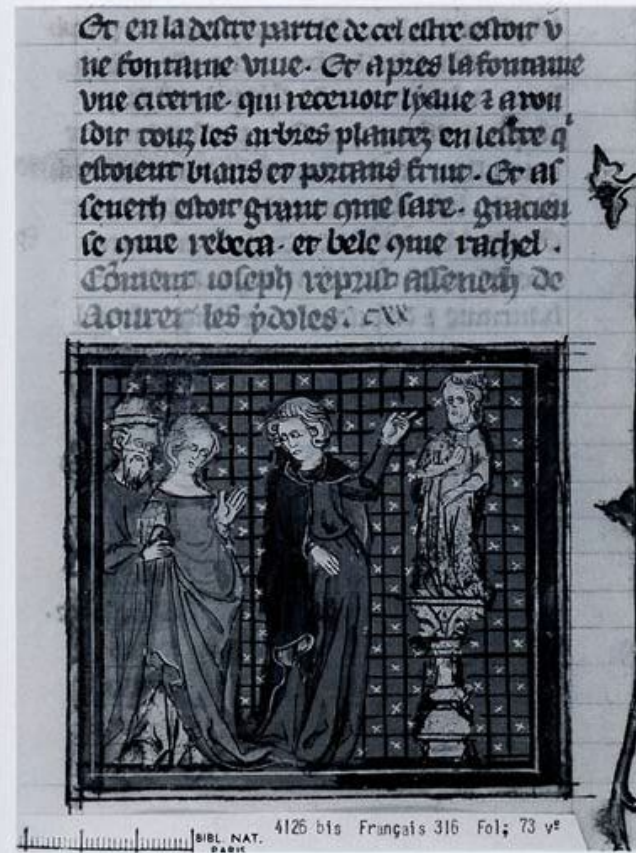 Et en la destre partie de cel estre estoit v
ne fontaine viue. Et apres la fontaine
vne citerne. qui receuoit lyaue ⁊ arou
soit touz les arbres plantez en lestre qͥ
estoient biaus et portans fruit. Et as
seneth estoit grant ꝯme sare. gracieu
se ꝯme rebeca. et bele ꝯme rachel.
Cōment ioseph reprist assenech de
Aourer les ydoles.
BIBL. NAT.
PARIS
4126 bis Français 316 Fol; 73 vº